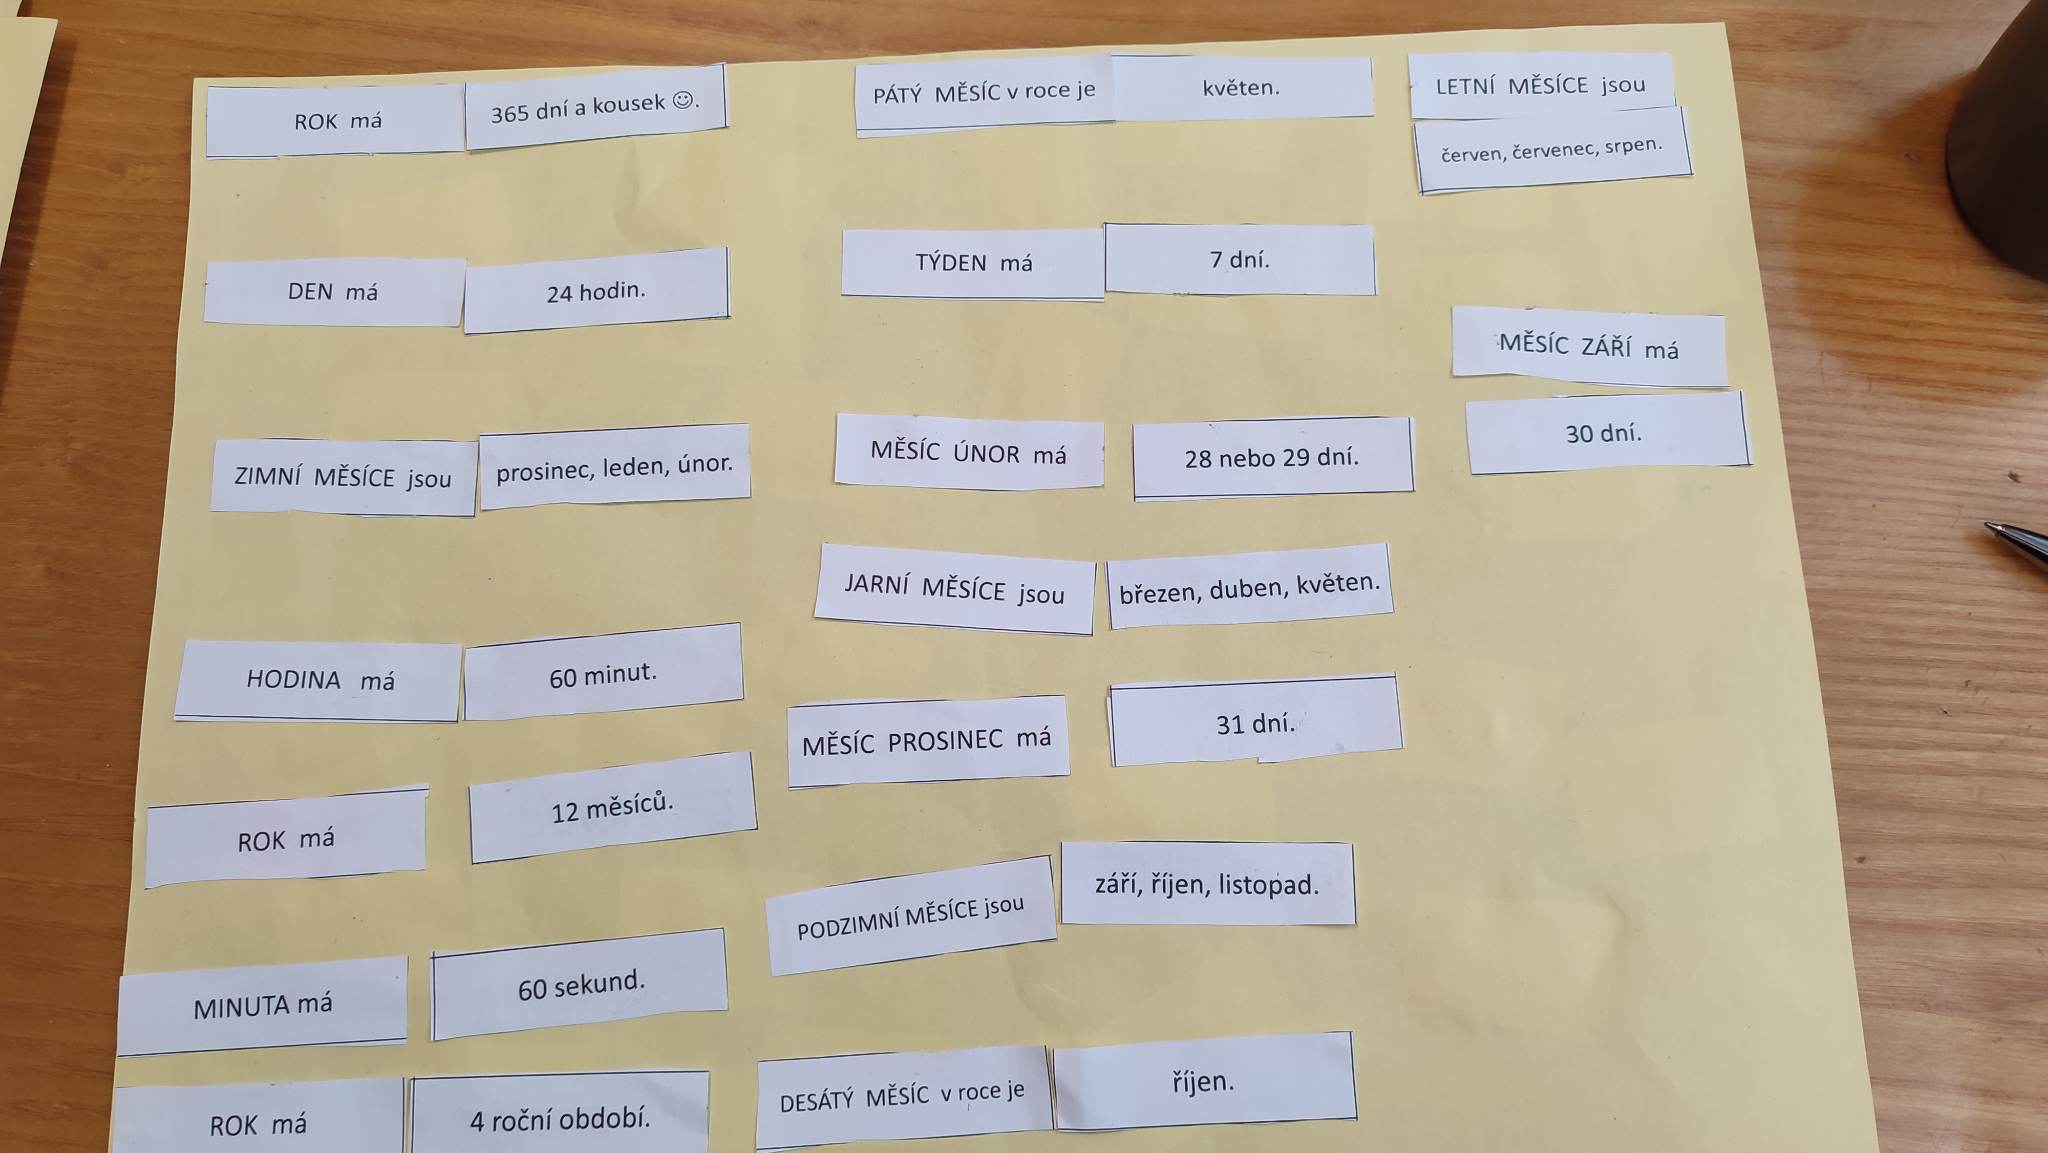 ROK má 365 dní a kousek ☺.
DEN má 24 hodin.
ZIMNÍ MĚSÍCE jsou prosinec, leden, únor.
HODINA má 60 minut.
ROK má 12 měsíců.
MINUTA má 60 sekund.
ROK má 4 roční období.
PÁTÝ MĚSÍC v roce je květen.
TÝDEN má 7 dní.
MĚSÍC ÚNOR má 28 nebo 29 dní.
JARNÍ MĚSÍCE jsou březen, duben, květen.
MĚSÍC PROSINEC má 31 dní.
PODZIMNÍ MĚSÍCE jsou září, říjen, listopad.
DESÁTÝ MĚSÍC v roce je říjen.
LETNÍ MĚSÍCE jsou
červen, červenec, srpen.
MĚSÍC ZÁŘÍ má
30 dní.